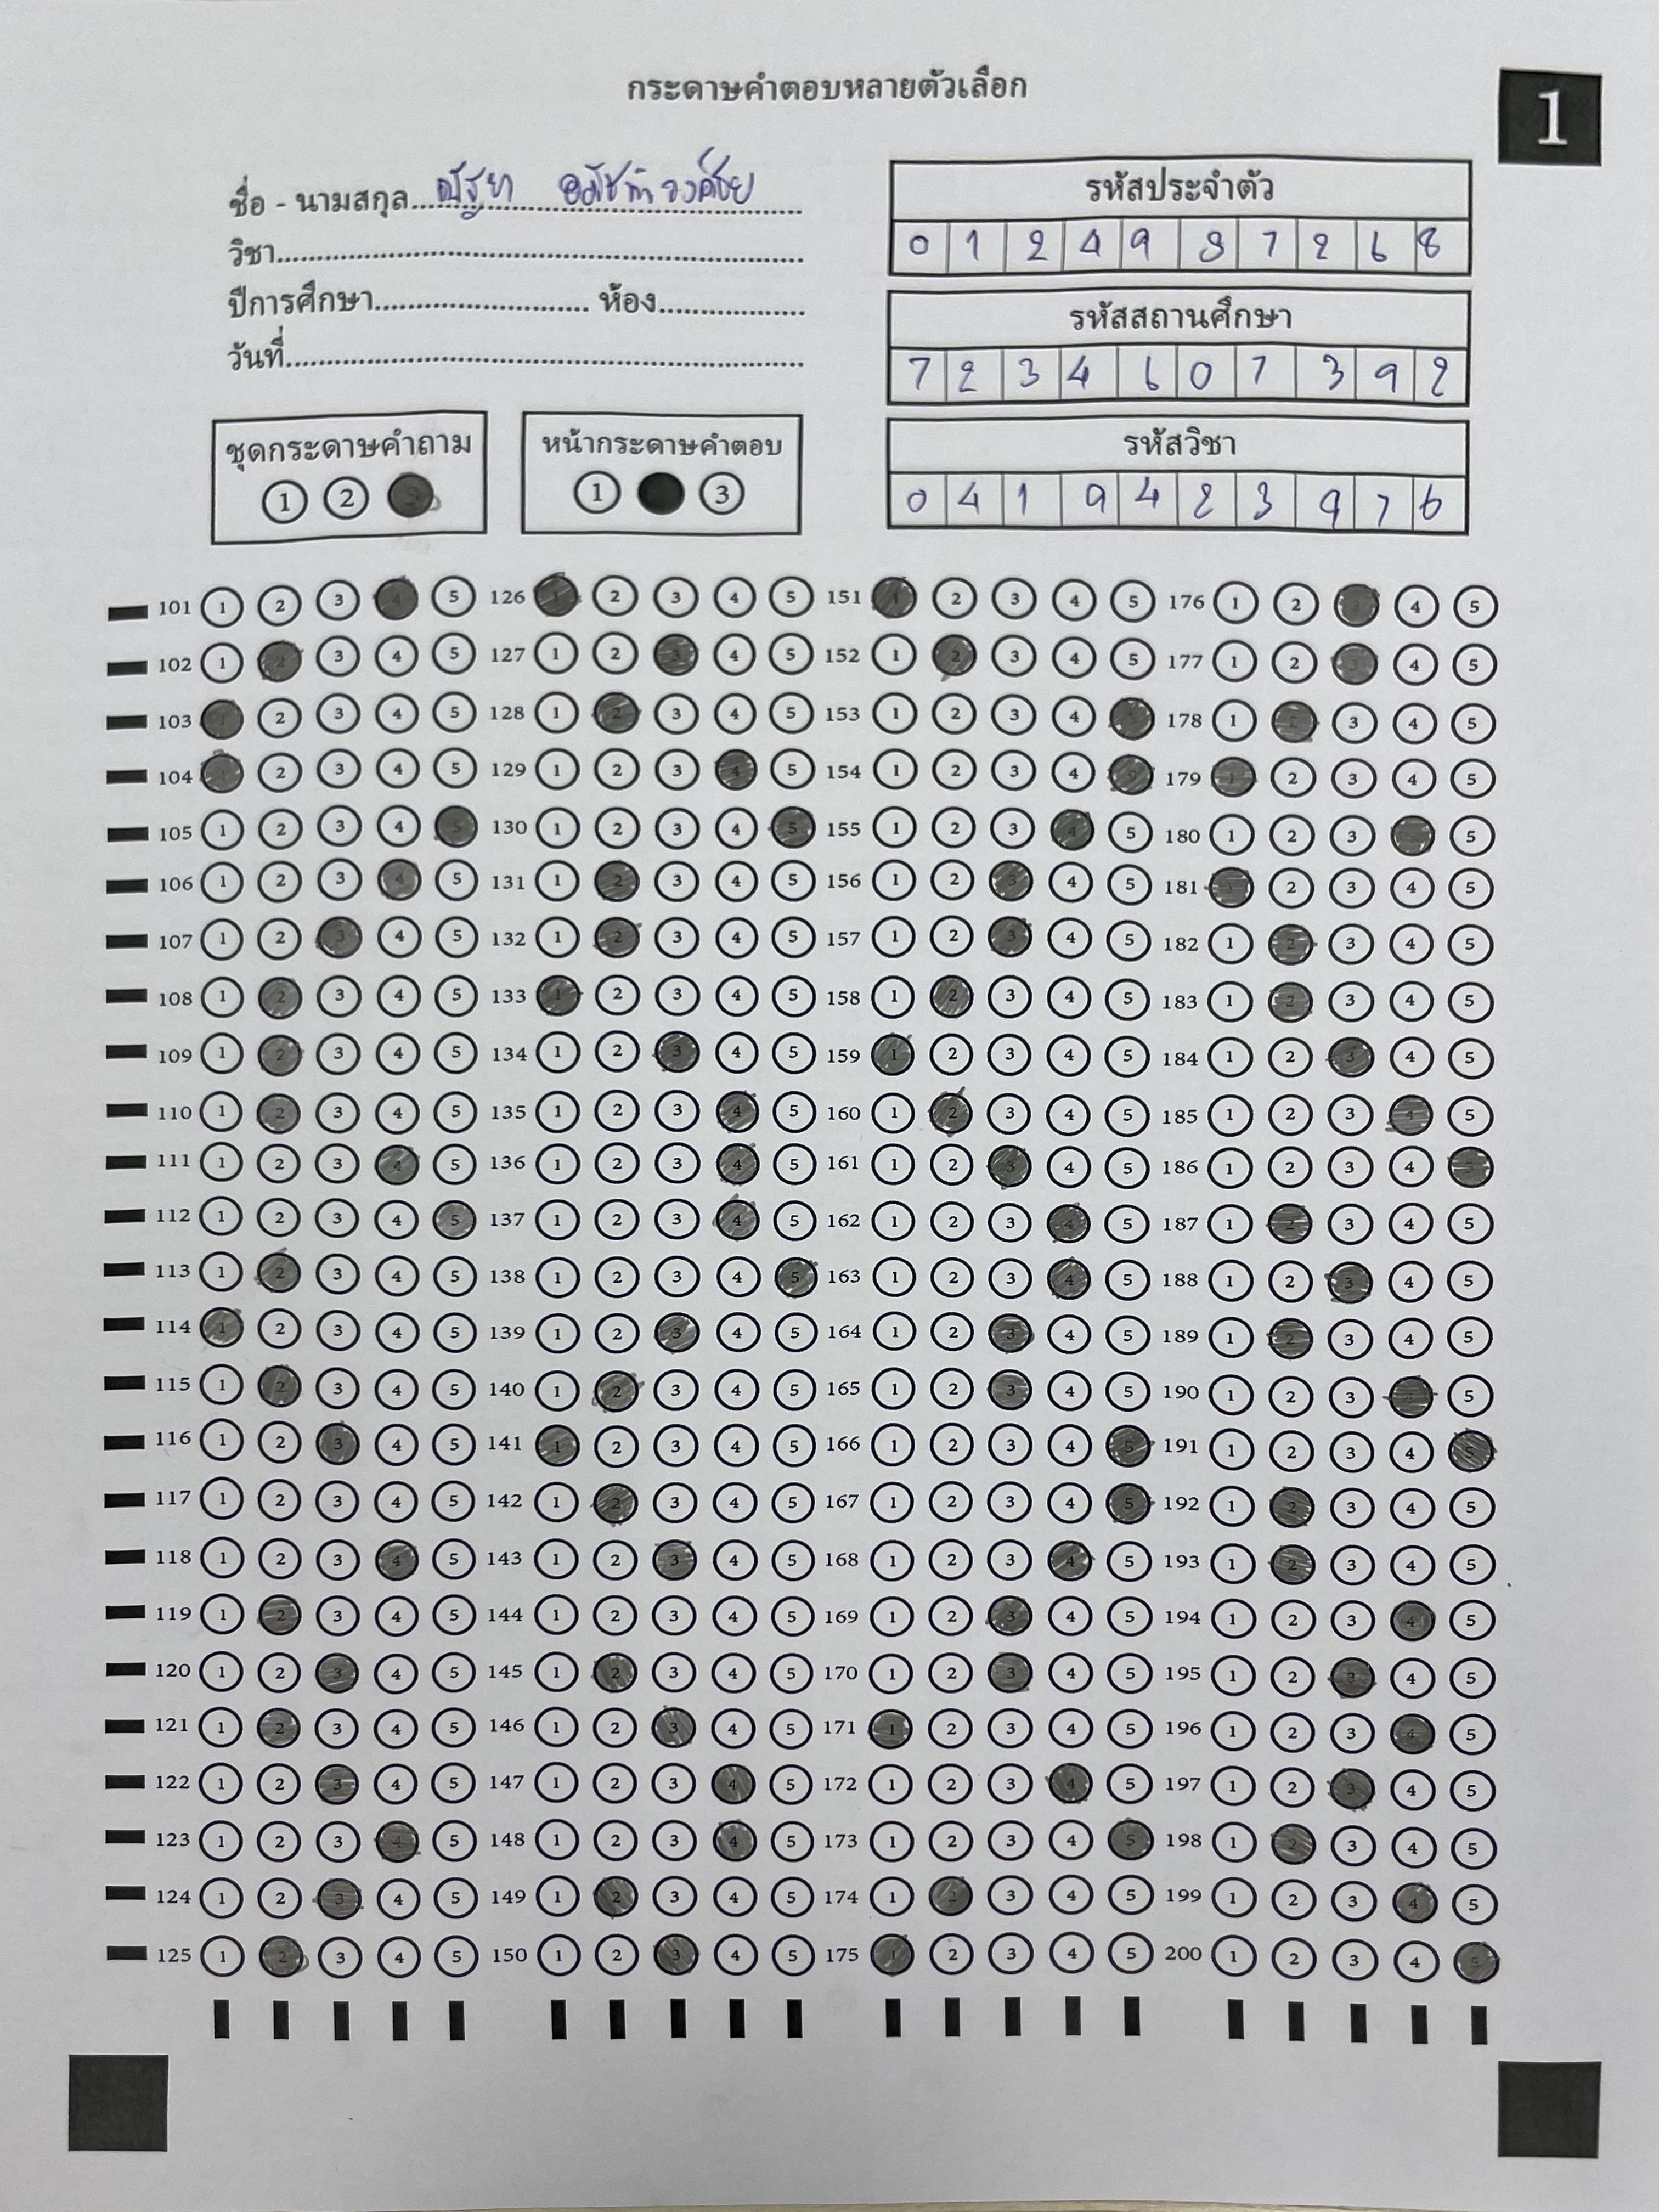 กระดาษคำตอบหลายตัวเลือก
1
ชื่อ - นามสกุล ณัฐยา
วิชา
ปีการศึกษา ห้อง
วันที่
รหัสประจำตัว
0 1 2 4 9 8 7 2 6 8
รหัสสถานศึกษา
7 2 3 4 6 0 7 3 9 2
รหัสวิชา
0 4 1 9 4 2 3 9 7 6
ชุดกระดาษคำถาม
1 2 3
หน้ากระดาษคำตอบ
1 3
101 1 2 3 4 5 126 1 2 3 4 5 151 1 2 3 4 5 176 1 2 3 4 5
102 1 2 3 4 5 127 1 2 3 4 5 152 1 2 3 4 5 177 1 2 3 4 5
103 1 2 3 4 5 128 1 2 3 4 5 153 1 2 3 4 5 178 1 2 3 4 5
104 1 2 3 4 5 129 1 2 3 4 5 154 1 2 3 4 5 179 1 2 3 4 5
105 1 2 3 4 5 130 1 2 3 4 5 155 1 2 3 4 5 180 1 2 3 5
106 1 2 3 4 5 131 1 2 3 4 5 156 1 2 3 4 5 181 1 2 3 4 5
107 1 2 3 4 5 132 1 2 3 4 5 157 1 2 3 4 5 182 1 2 3 4 5
108 1 2 3 4 5 133 1 2 3 4 5 158 1 2 3 4 5 183 1 2 3 4 5
109 1 2 3 4 5 134 1 2 3 4 5 159 1 2 3 4 5 184 1 2 3 4 5
110 1 2 3 4 5 135 1 2 3 4 5 160 1 2 3 4 5 185 1 2 3 4 5
111 1 2 3 4 5 136 1 2 3 4 5 161 1 2 3 4 5 186 1 2 3 4 5
112 1 2 3 4 5 137 1 2 3 4 5 162 1 2 3 4 5 187 1 2 3 4 5
113 1 2 3 4 5 138 1 2 3 4 5 163 1 2 3 4 5 188 1 2 3 4 5
114 1 2 3 4 5 139 1 2 3 4 5 164 1 2 3 4 5 189 1 2 3 4 5
115 1 2 3 4 5 140 1 2 3 4 5 165 1 2 3 4 5 190 1 2 3 4 5
116 1 2 3 4 5 141 1 2 3 4 5 166 1 2 3 4 5 191 1 2 3 4 5
117 1 2 3 4 5 142 1 2 3 4 5 167 1 2 3 4 5 192 1 2 3 4 5
118 1 2 3 4 5 143 1 2 3 4 5 168 1 2 3 4 5 193 1 2 3 4 5
119 1 2 3 4 5 144 1 2 3 4 5 169 1 2 3 4 5 194 1 2 3 4 5
120 1 2 3 4 5 145 1 2 3 4 5 170 1 2 3 4 5 195 1 2 3 4 5
121 1 2 3 4 5 146 1 2 3 4 5 171 1 2 3 4 5 196 1 2 3 4 5
122 1 2 3 4 5 147 1 2 3 4 5 172 1 2 3 4 5 197 1 2 3 4 5
123 1 2 3 4 5 148 1 2 3 4 5 173 1 2 3 4 5 198 1 2 3 4 5
124 1 2 3 4 5 149 1 2 3 4 5 174 1 2 3 4 5 199 1 2 3 4 5
125 1 2 3 4 5 150 1 2 3 4 5 175 1 2 3 4 5 200 1 2 3 4 5